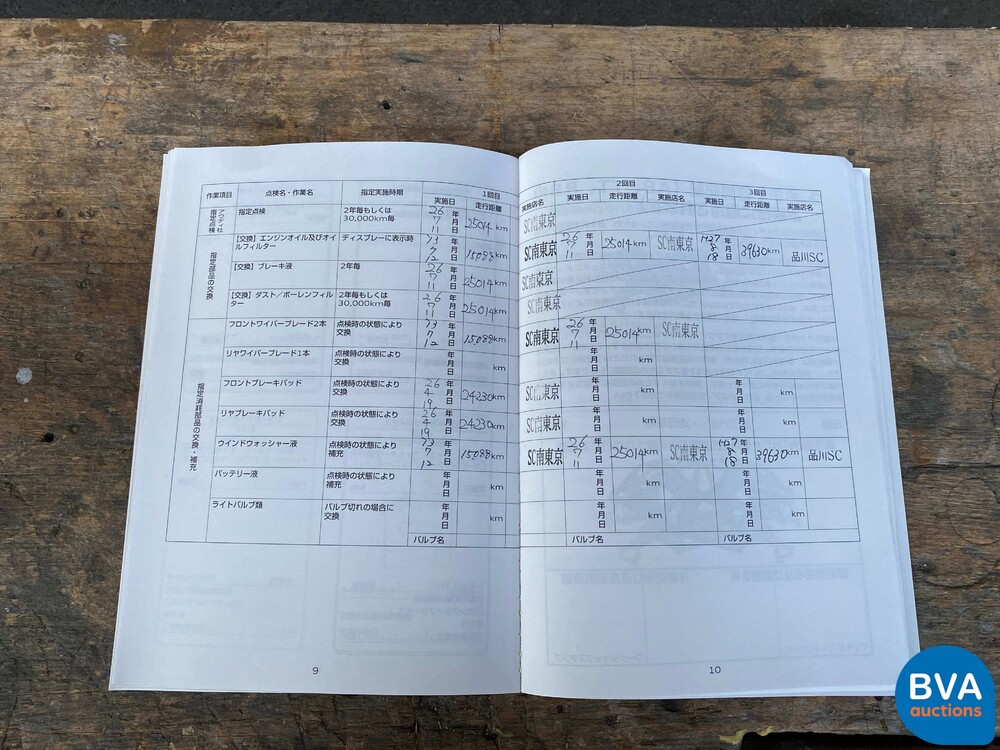 1回目 2回目 3回目
作業項目 点検名・作業名 指定実施時期 実施日 走行距離 実施店名 実施日 走行距離 実施店名 実施日 走行距離 実施店名
アウディ社指定点検 指定点検 2年毎もしくは 26年7月11日 25014km SC南東京
30,000km毎
指定部品の交換
【交換】エンジンオイル及びオイルフィルター ディスプレーに表示時 年月日 15088km SC南東京 26年7月11日 25014km SC南東京 H27年8月18日 39630km 品川SC
【交換】ブレーキ液 2年毎 26年7月11日 25014km SC南東京
【交換】ダスト/ポーレンフィルター 2年毎もしくは 26年7月11日 25014km SC南東京
30,000km毎
指定消耗部品の交換・補充
フロントワイパーブレード2本 点検時の状態により 年月日 15088km SC南東京 26年7月11日 25014km SC南東京
交換
リヤワイパーブレード1本 点検時の状態により 年月日 km 年月日 km
交換
フロントブレーキパッド 点検時の状態により 26年4月19日 24230km SC南東京 年月日 km 年月日 km
交換
リヤブレーキパッド 点検時の状態により 26年4月19日 24230km SC南東京 年月日 km 年月日 km
交換
ウインドウォッシャー液 点検時の状態により 年月日 15088km SC南東京 26年7月11日 25014km SC南東京 H27年8月18日 39630km 品川SC
補充
バッテリー液 点検時の状態により 年月日 km 年月日 km 年月日 km
補充
ライトバルブ類 バルブ切れの場合に 年月日 km 年月日 km 年月日 km
交換
バルブ名 バルブ名 バルブ名
9 10
BVA
auctions